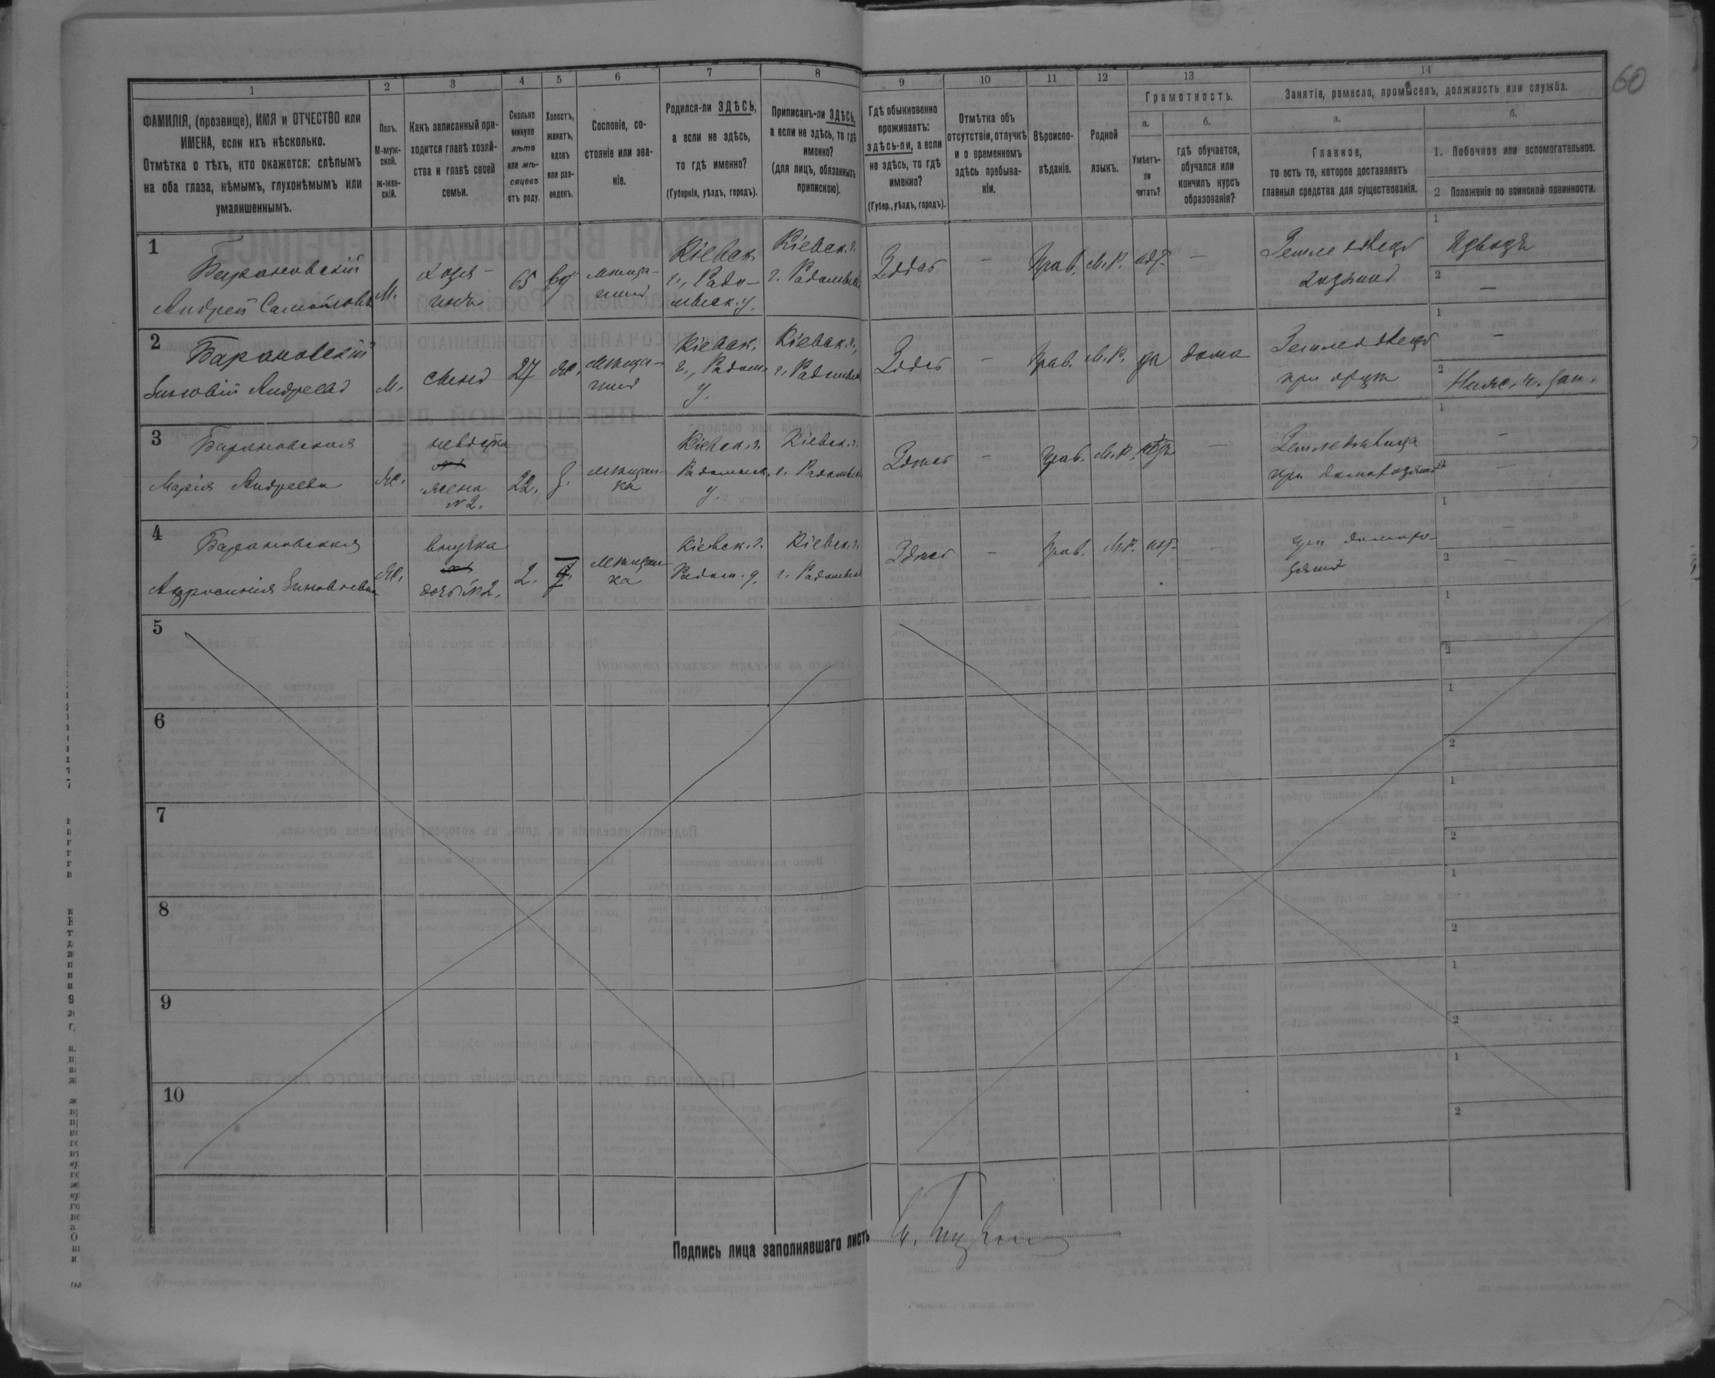 60
1 2 3 4 5 6 7 8 9 10 11 12 13 14
ФАМИЛІЯ, (прозвище), ИМЯ и ОТЧЕСТВО или
ИМЕНА, если ихъ нѣсколько.
Отмѣтка о тѣхъ, кто окажется: слѣпымъ
на оба глаза, нѣмымъ, глухонѣмымъ или
умалишеннымъ.
Полъ.
М-муж-
ской.
ж-жен-
скій.
Какъ записанный при-
ходится главѣ хозяй-
ства и главѣ своей
семьи.
Сколько
минуло
лѣтъ
или мѣ-
сяцевъ
отъ роду.
Холостъ,
женатъ,
вдовъ
или раз-
веденъ.
Сословіе, со-
стояніе или зва-
ніе.
Родился-ли ЗДѢСЬ,
а если не здѣсь,
то гдѣ именно?
(Губернія, уѣздъ, городъ).
Приписанъ-ли ЗДѢСЬ,
а если не здѣсь, то гдѣ
именно?
(для лицъ, обязанныхъ
припискою).
Гдѣ обыкновенно
проживаетъ:
здѣсь-ли, а если
не здѣсь, то гдѣ
именно?
(Губер., уѣздъ, городъ).
Отмѣтка объ
отсутствіи, отлучкѣ
и о временномъ
здѣсь пребыва-
ніи.
Вѣроиспо-
вѣданіе.
Родной
языкъ.
Грамотность.
а.
Умѣетъ-
ли
читать?
б.
гдѣ обучается,
обучался или
кончилъ курсъ
образованія?
Занятіе, ремесло, промыселъ, должность или служба.
а.
Главное,
то есть то, которое доставляетъ
главныя средства для существованія.
б.
1. Побочное или вспомогательное.
2 Положеніе по воинской повинности.
1
Барановскій
Андрей Самойловъ
М.
хозя-
инъ
65
вд
мѣща-
нинъ
Кіевск.
г., Радо-
мысл. у.
Кіевск. г.
г. Радомысл
Здѣсь
–
Прав.
М.Р.
нѣт
–
Земледѣлецъ
хозяинъ
1
Извозъ
2 –
2
Барановскій
Зиновій Андреевъ
М.
сынъ
27
ж.
мѣща-
нинъ
Кіевск.
г., Радом.
у.
Кіевск. г.
г. Радомысл
Здѣсь
–
Прав.
М.Р.
да
дома
Земледѣлецъ
при отцѣ
1 –
2
3
Барановская
Марія Андреева
Ж.
невѣстка
жена
№2.
22.
з.
мѣщан-
ка
Кіевск. г.
Радомысл.
у
Кіевск. г.
г. Радомысл
Здѣсь
–
Прав.
М.Р.
нѣтъ
–
при домохозяинѣ
1 –
2 –
4
Барановская
Зиновьева
Ж.
внучка
дочь №2.
2.
мѣщан-
ка
Кіевск. г.
Радом. у.
Кіевск. г.
г. Радомысл
Здѣсь
–
Прав.
М.Р.
нѣт
–
при домохо-
зяинѣ
1 –
2 –
5
1
2
6
1
2
7
1
2
8
1
2
9
1
2
10
1
2
Подпись лица заполнявшаго листъ